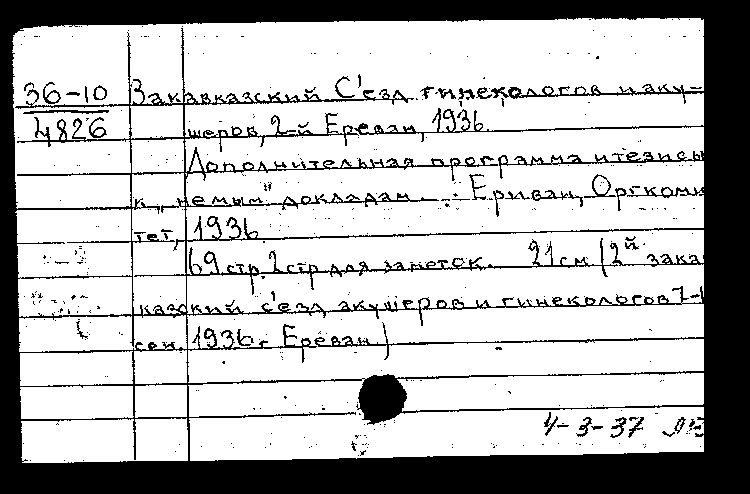 36-10 Закавказский С'езд гинекологов и аку=
4826 шеров, 2-й Ереван, 1936.
Дополнительная программа и тезисы
к „немым" докладам. . . Ериван, Оргкоми
тет, 1936.
69 стр. 2 стр для заметок. 21 см (2й зака
казский с'езд акушеров и гинекологов 7-
сен. 1936 г. Ереван)
4-3-37